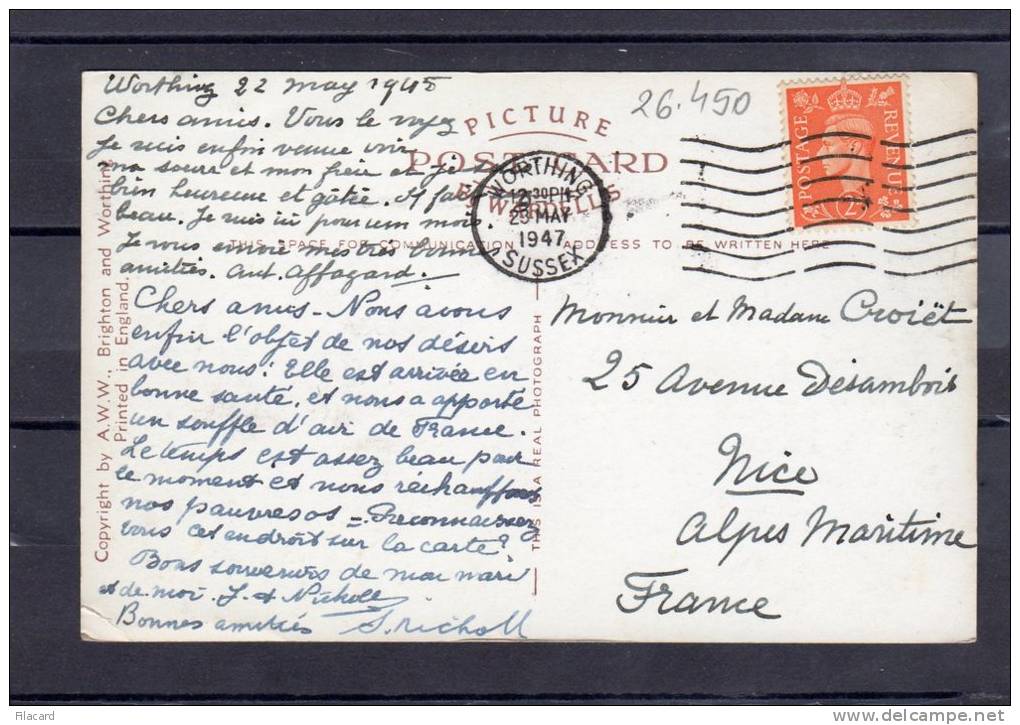 Worthing 22 may 1945
26.450
Chers amis. Vous le voyez
Je suis enfin venue voir
ma sœur et mon frère et je
bien heureuse et gâtée. Il fait
beau. Je suis ici pour un mois
Je vous envoie mes très bonnes
amitiés. Ant. Affagard.
Chers amis - Nous avons
enfin l'objet de nos désirs
avec nous : Elle est arrivée en
bonne santé, et nous a apporté
un souffle d'air de France.
Le temps est assez beau pour
le moment et nous réchauffons
nos pauvres os = Reconnaissez
vous cet endroit sur la carte?
Bons souvenirs de mon mari
et de moi. J. & Nicholl
Bonnes amitiés S. Nicholl
PICTURE
POST CARD
THIS SPACE FOR COMMUNICATION
ADDRESS TO BE WRITTEN HERE
WORTHING
12.30PM
23 MAY
1947
SUSSEX
POSTAGE
REVENUE
Monsieur et Madame Croiët
25 Avenue Desambois
Nice
Alpes Maritime
France
Copyright by A.W.W., Brighton and Worthing.
Printed in England.
THIS IS A REAL PHOTOGRAPH
Filacard
delcampe.net